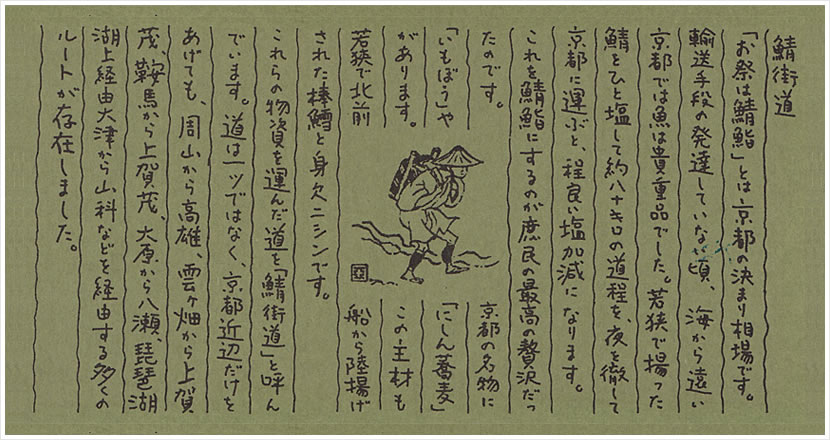 鯖街道
「お祭は鯖鮨」とは京都の決まり相場です。
輸送手段の発達していない頃、海から遠い
京都では魚は貴重品でした。若狭で揚った
鯖をひと塩して約八十キロの道程を、夜を徹して
京都に運ぶと、程良い塩加減になります。
これを鯖鮨にするのが庶民の最高の贅沢だっ
たのです。京都の名物に
「いもぼう」や「にしん蕎麦」
があります。この主材も
若狭で北前船から陸揚げ
された棒鱈と身欠ニシンです。
これらの物資を運んだ道を「鯖街道」と呼ん
でいます。道は一ツではなく、京都近辺だけを
あげても、周山から高雄、雲ヶ畑から上賀
茂、鞍馬から上賀茂、大原から八瀬、琵琶湖
湖上経由大津から山科などを経由する多くの
ルートが存在しました。